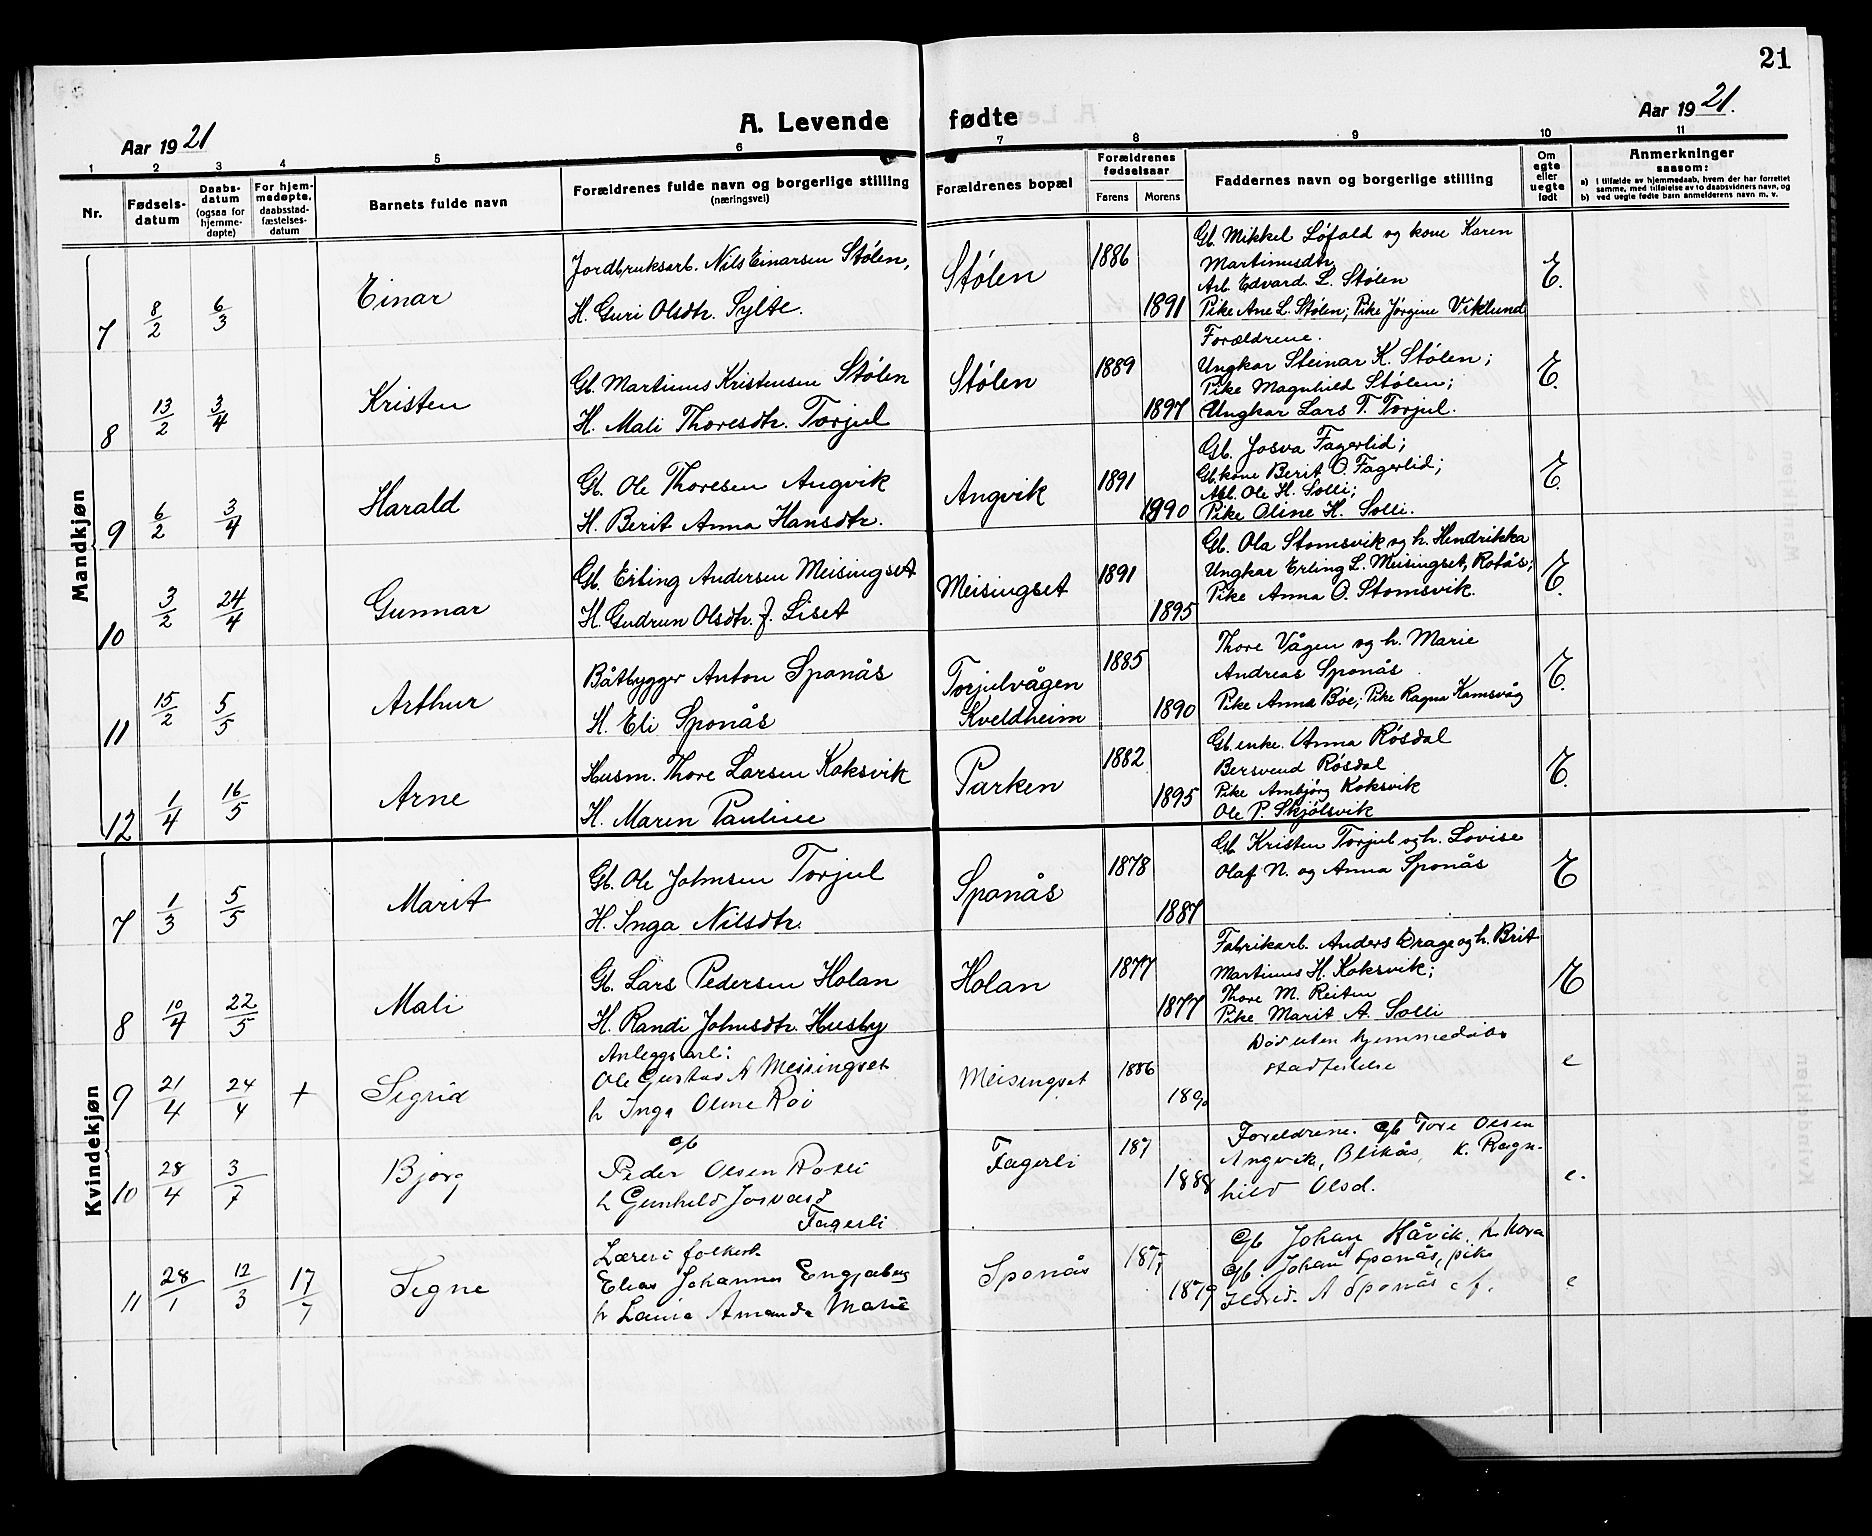 21
Aar 1921
A. Levende fødte
Aar 1921.
1 2 3 4 5 6 7 8 9 10 11
Nr.
Fødsels-
datum
Daabs-
datum
(ogsaa for
hjemme-
døpte)
For hjem-
medøpte,
daabsstad-
fæstelses-
datum
Barnets fulde navn
Forældrenes fulde navn og borgerlige stilling
(næringsvei)
Forældrenes bopæl
Forældrenes
fødselsaar
Farens Morens
Faddernes navn og borgerlige stilling
Om
egte
eller
uegte
født
Anmerkninger
saasom:
a) i tilfælde av hjemmedaab, hvem der har forrettet
samme, med tilføielse av to daabsvidners navn, og
b) ved uegte fødte barn anmelderens navn m. v.
Mandkjøn
7 8/2 6/3 Einar
Jordbruksarb. Nils Einarsen Stølen,
H. Guri Olsdtr. Sylte.
Stølen 1886 1891
Gb. Mikkel Løfald og kone Karen
Martinusdtr
Arb. Edvard L. Stølen
Pike Ane L. Stølen; Pike Jørgine Viklund
E.
8 13/2 3/4 Kristen
Gb. Martinus Kristensen Stølen
H. Mali Thoresdtr. Torjul
Stølen 1889 1897
Forældrene.
Ungkar Steinar K. Stølen;
Pike Magnhild Stølen;
Ungkar Lars T. Torjul.
E.
9 6/2 3/4 Harald
Gb. Ole Thoresen Angvik
H. Berit Anna Hansdtr.
Angvik 1891 1990
Gb. Josva Fagerlid;
Gb.kone Berit O. Fagerlid;
Arb. Ole H. Solli;
Pike Oline H. Solli.
E.
10 3/2 24/4 Gunnar
Gb. Erling Andersen Meisingset
H. Gudrun Olsdtr. f. Liset
Meisingset 1891 1895
Gb. Ola Stomsvik og h. Hendrikka
Ungkar Erling L. Meisingset, Rotås;
Pike Anna O. Stomsvik.
E.
11 15/2 5/5 Arthur
Båtbygger Anton Sponås
H. Eli Sponås
Torjulvågen
Kveldheim
1885 1890
Thore Vågen og h. Marie
Andreas Sponås
Pike Anna Bøe; Pike Ragna Kamsvåg
E.
12 1/4 16/5 Arne
Husm. Thore Larsen Koksvik
H. Maren Pauline
Parken 1882 1895
Gb.enke. Anna Røsdal
Bersvend Røsdal
Pike Ambjørg Koksvik
Ole P. Skjølsvik
E.
Kvindekjøn
7 1/3 5/5 Marit
Gb. Ole Johnsen Torjul
H. Inga Nilsdtr.
Sponås 1878 1887
Gb Kristen Torjul og h. Lovise
Olaf N. og Anna Sponås
E
8 10/4 22/5 Mali
Gb. Lars Pedersen Holan
H. Randi Johnsdtr. Husby
Holan 1877 1877
Fabrikarb. Anders Drage og h. Brit
Martinus H. Koksvik;
Thore M. Reiten
Pike Marit A. Solli
E
9 21/4 24/4 + Sigrid
Anleggsarb:
Ole Gustav A Meisingset
h Inga Oline Roö
Meisingset 1886 1890
Död uten hjemmedåbs
stadfestelse
e
10 28/4 3/7 Bjørg
gb
Peder Olsen
h Gunhild Josvasd
Fagerli
Fagerli 187 1888
Foreldrene. gb Tore Olsen
Angvik, Blikås, k. Ragn-
hild Olsd.
e.
11 28/1 12/3 17/7 Signe
Lærer i folkesk
Elias Johannes Engjaberg
h Laura Amanda Marie
Sponås 1877 1879
gb Johan Håvik, h. Nora
gb. Johan A Sponås, pike
Ildrid. A Sponås e f.
e